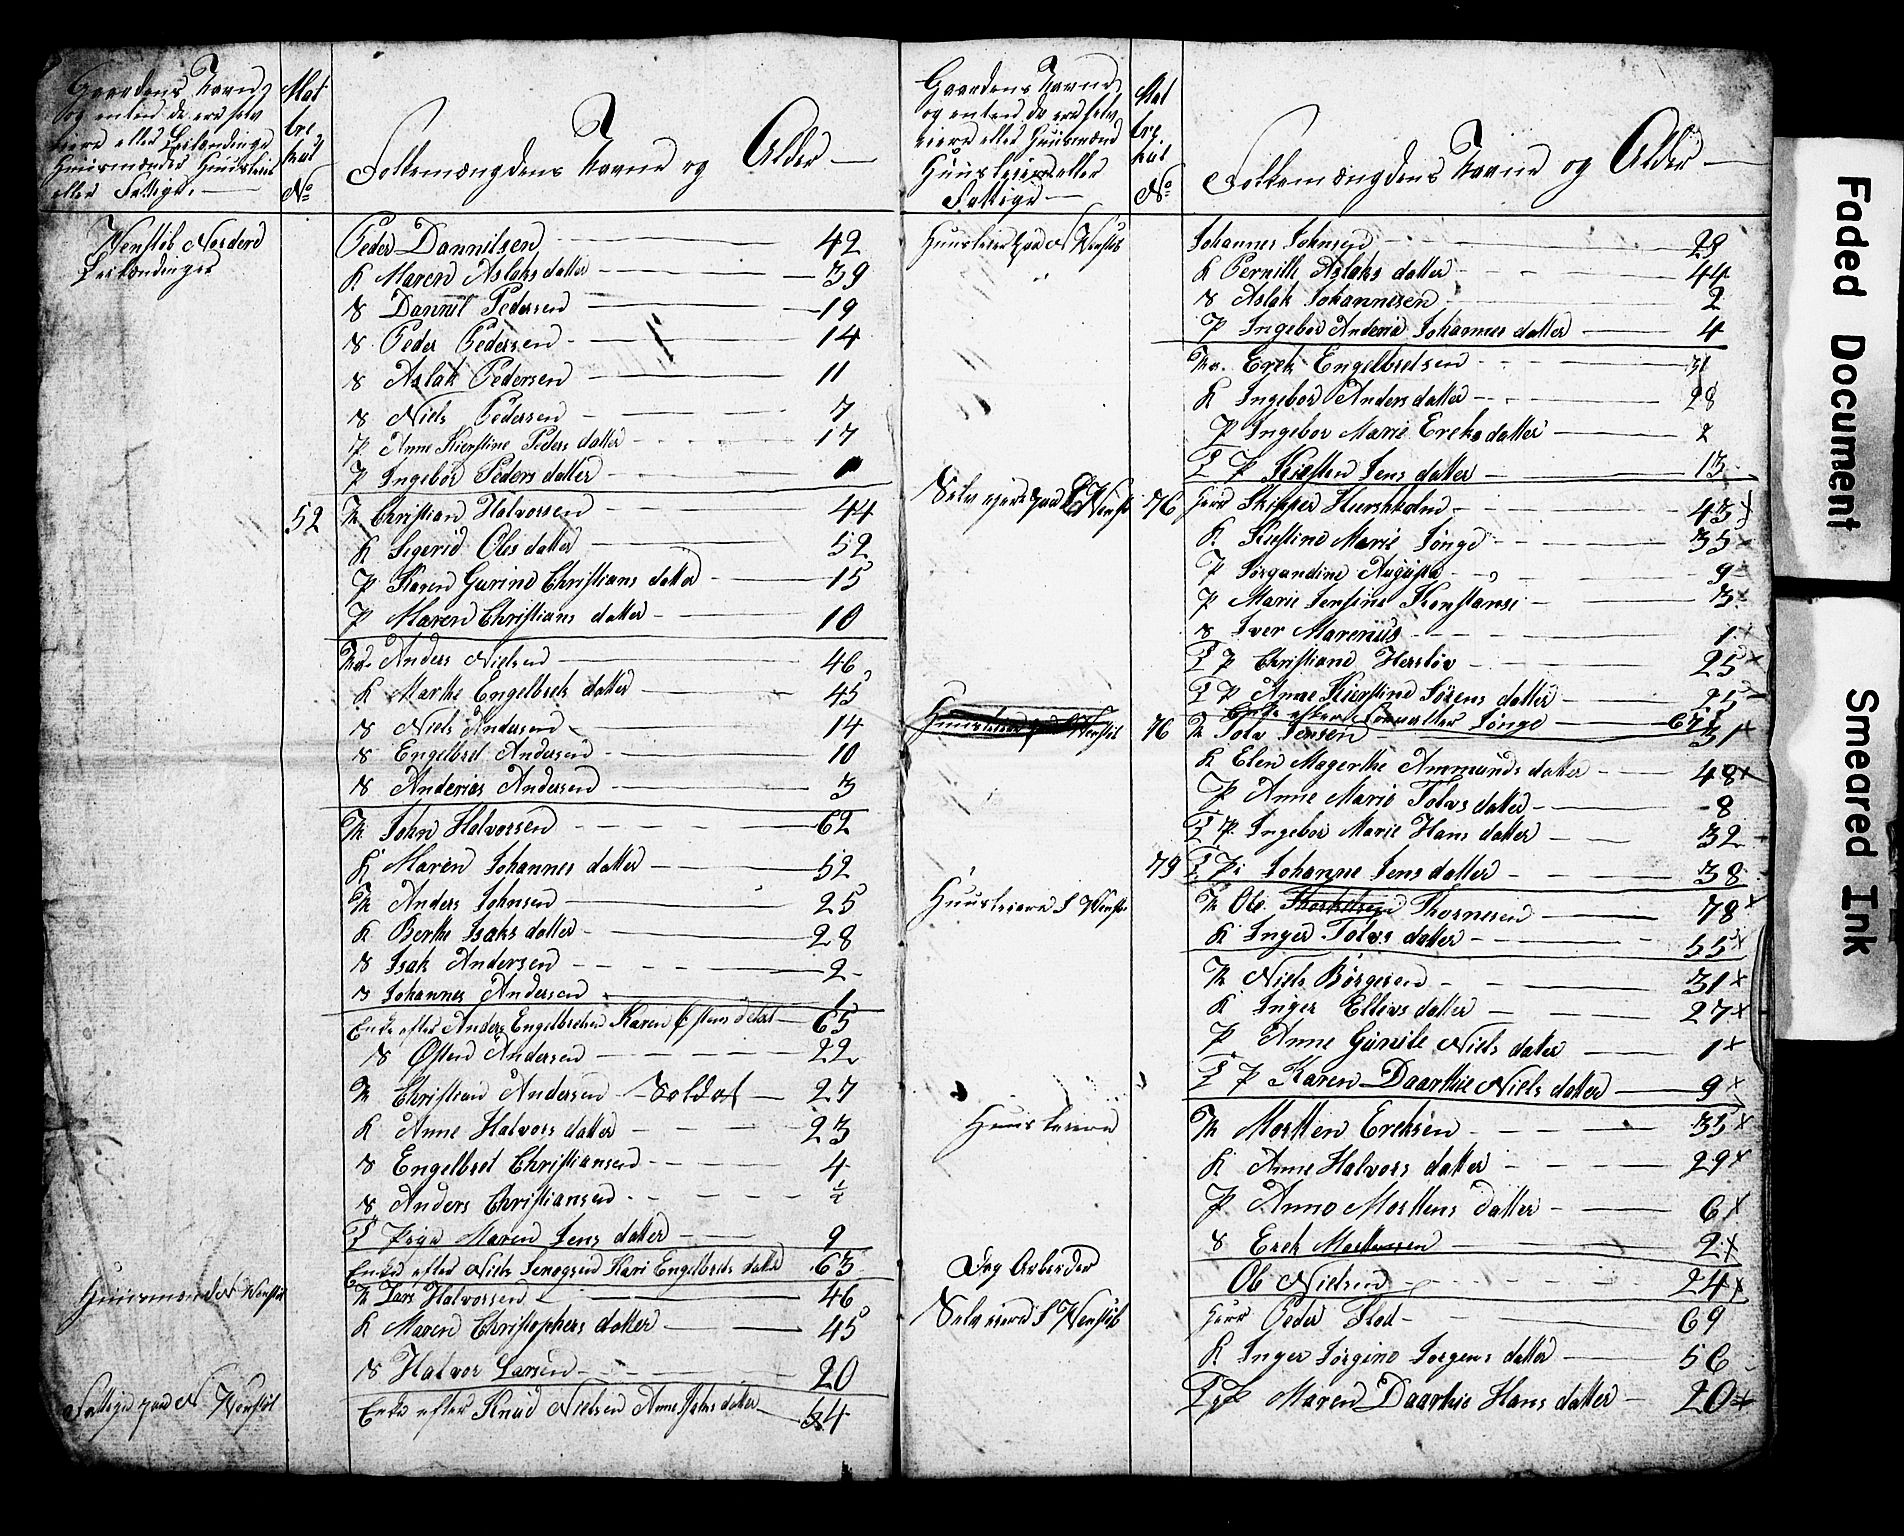 Gaardens Navn,
og enten de ere selv
eiere eller Leilændinge
Huusmænd Huusleiere
eller Fattige.
Mat
tre
kul
No
Folkemængdens Navne og Alder
Wenstøb Nordere
Leilændinger
Peder Dannilsen 42
K Maren Aslaks datter 39
S Dannil Pedersen 19
S Peder Pedersen 14
S Aslak Pedersen 11
S Niels Pedersen 7
P Anne Kierstine Peders datter 17
P Ingebor Peders datter
52 M Christian Halvorsen 44
K Sigerid Oles datter 52
P Karen Gurine Christians datter 15
P Maren Christians datter 10
Anders Nielsen 46
K Marthe Engelbrets datter 45
S Niels Andersen 14
S Engelbret Andersen 10
S Anderias Andersen 3
M John Halvorsen 62
K Maren Johannes datter 52
M Anders Johnsen 25
K Berthe Isaks datter 28
S Isak Andersen 2
S Johannes Andersen 1
Enke efter Anders Engelbretsen Karen Østens datter 65
S Østen Andersen 22
M Christian Andersen Soldat 27
K Anne Halvors datter 23
S Engelbret Christiansen 4
S Anders Christiansen ½
T Pige Maren Jens datter 9
Enke efter Niels Kari Engelbrets datter 63
Huusmænd N Wenstøb
M Lars Halvorsen 46
K Maren Christophers datter 45
S Halvor Larsen 20
Fattige paa N Wenstøb
Enke efter Knud Nielsen Anne datter 54
Gaardens Navn,
og enten de ere selv
eiere eller Huusmænd
Huusleiere eller
Fattige
Mat
tre
kul
No
Folkemængdens Navne og Alder
Huusleiere paa N Wenstøb
Johannes Johnsen 29
K Pernille Aslaks datter 44
S Aslak Johannesen 2
P Ingebor Anderia Johannes datter 4
M Erek Engelbretsen 31
K Ingebor Anders datter 28
P Ingebor Marie Ereks datter 2
T P Kiersten Jens datter 13
Selv eiere paa Wenstøb 76 Herr Skipper Hiershholm 43
K Kiestine Marie Jønge 35
P Jørgandine Augusta 9
P Marie Jensine Konstanse 3
S Iver Marenius 1
T P Christiane Hersløv 25
T P Anne Kierstine Sørens datter 25
Enke efter Forvalter Jønge 67
Huusleiere paa Wenstøb
76 M Tolv Jensen 31
K Elen Magerthe Ammunds datter 48
P Anne Marie Tolvs datter 8
T P Ingebor Marie Hans datter 32
79 T Pi Johanne Jens datter 38
Huusleiere S Wenstøb
M Ole Thorkelsen Thornesen 78
K Inger Tolvs datter 55
M Niels Børgesen 31
K Inger Ellevs datter 27
P Anne Gunile Niels datter 1
T P Karen Daarthie Niels datter 9
Huusleiere
M Mortten Ereksen 35
K Anne Halvors datter 29
P Anne Morttens datter 6
S Erek Mortensen 2
Dag Arbeider
Ole Nielsen 24
Selv eiere S Wenstøb
Herr Peder Flod 69
K Inger Jørgine Jørgens datter 56
T P Maren Daarthie Hans datter 20
Faded Document
Smeared Ink